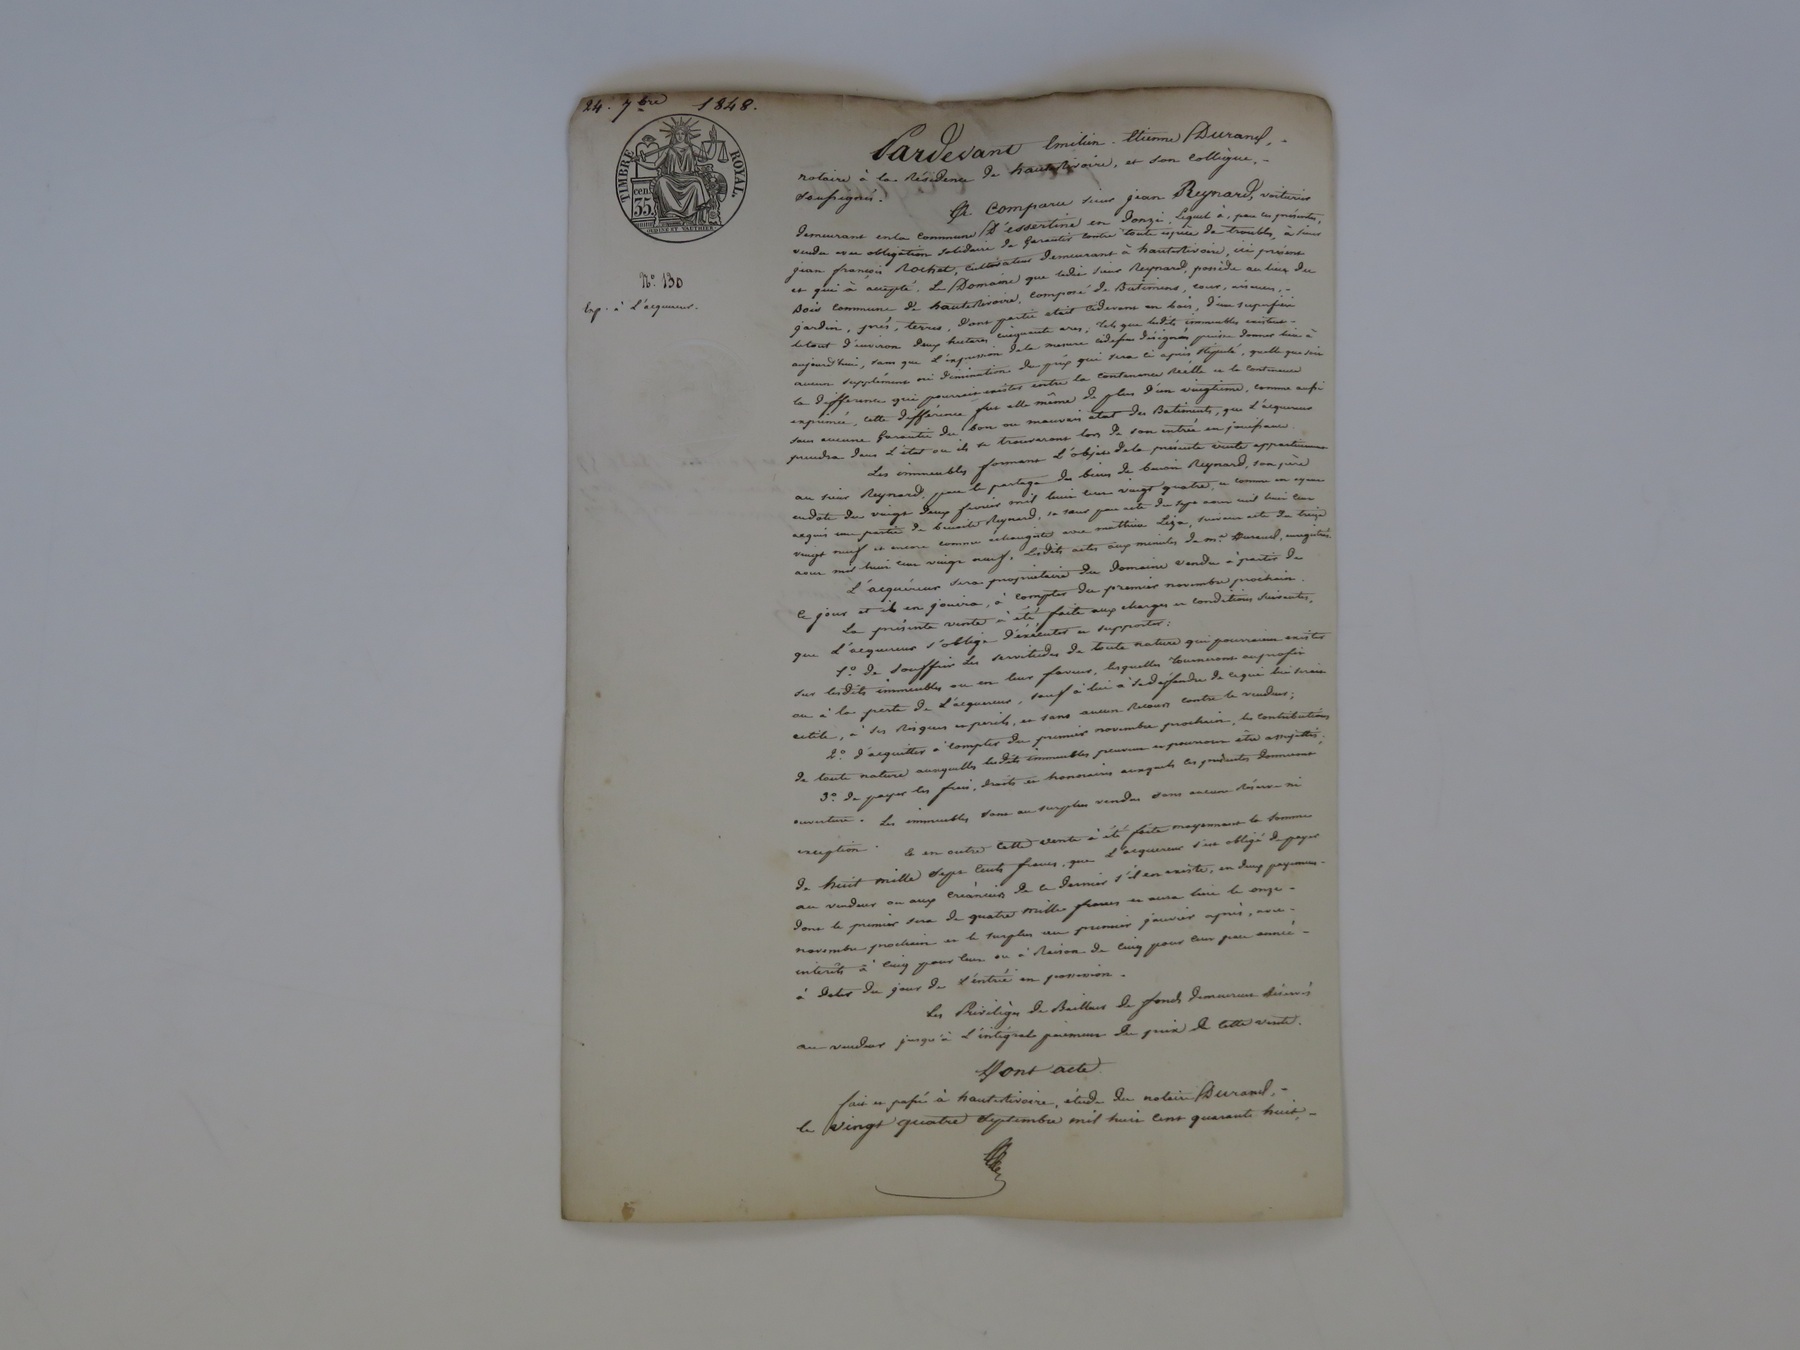 24. 7bre 1848.
TIMBRE ROYAL
cen. 35.
No. 130
Exp. à L'acquereur.
Pardevant Emilien - Etienne Durand, -
notaire à la Résidence de hauteRivoire, et son collègue, -
soussignés.
A Comparu sieur jean Reynard, voiturier
demeurant en la commune D'essertine en Donzi. Lequel à, par ces présentes,
vendu avec obligation solidaire de Garantir contre toute espèce de troubles, à sieur
jean françois Rochat, cultivateur demeurant à hauteRivoire, ici présent
et qui à accepté. Le Domaine que ledit sieur Reynard, possède au lieu du
Bois commune de hauteRivoire, composé de Batimens, cour, aisances, -
jardin, prés, terres, dont partie était cidevant en bois, d'une superficie
le tout d'environ deux hectares cinquante ares, tels que lesdits immeubles existent -
aujourd'hui, sans que L'expression de la mesure cidessus désignée puisse donner lieu à
aucun supplément ni diminution du prix qui sera ci après stipulé, quelle que soit
la différence qui pourrait exister entre la contenance Réelle et la contenance
exprimée, cette différence fut elle même de plus d'un vingtième, comme aussi
sans aucune Garantie du bon ou mauvais état des Batiments, que L'acquereur
prendra dans L'état ou ils se trouveront lors de son entrée en jouissance.
Les immeubles formant L'objet de la présente vente appartiennent
au sieur Reynard, par le partage des biens de benoit Reynard, son père
en date du vingt deux fevrier mil huit cent vingt quatre, et comme en ayant
acquis une partie de benoite Reynard, sa sœur par acte du sept aout mil huit cent
vingt neuf et encore comme échangiste avec mathieu Liza, suivant acte du treize
aout mil huit cent vingt neuf, Lesdits actes aux minutes de me Durand, enregistrés.
L'acquéreur sera propriétaire du Domaine vendu à partir de
ce jour et il en jouira, à compter du premier novembre prochain.
La présente vente à été faite aux charges et conditions suivantes,
que L'acquereur s'oblige d'exécuter et supporter:
1o. de souffrir les servitudes de toute nature qui pourraient exister
sur lesdits immeubles ou en leur faveur, lesquelles tourneront au profit
ou à la perte de L'acquereur, sauf à lui à se deffendre de ce qui lui serait
utile, à ses Risques et perils, et sans aucun Recours contre le vendeur;
2o. d'acquitter à compter du premier novembre prochain, les contributions
de toute nature auxquelles lesdits immeubles peuvent et pourront être assujettis;
3o. de payer les frais, droits et honoraires auxquels les présentes donneront
ouverture. Les immeubles sont au surplus vendus sans aucune Réserve ni
exception. & en outre cette vente à été faite moyennant la somme
de huit mille Sept Cents francs, que L'acquereur s'est obligé de payer
au vendeur ou aux créanciers de ce dernier s'il en existe, en deux payemens -
dont le premier sera de quatre mille francs et aura lieu le onze -
novembre prochain et le surplus au premier janvier après, avec -
intérêts à cinq pour cent ou à Raison de cinq pour cent par année -
à dater du jour de L'entrée en possession. -
Les Privilèges de Bailleur de fonds demeurent Réservés
au vendeur jusqu'à L'intégral paiement du prix de cette vente.
Dont acte.
fait et passé à hauteRivoire, étude du notaire Durand, -
le vingt quatre Septembre mil huit cent quarante huit, -